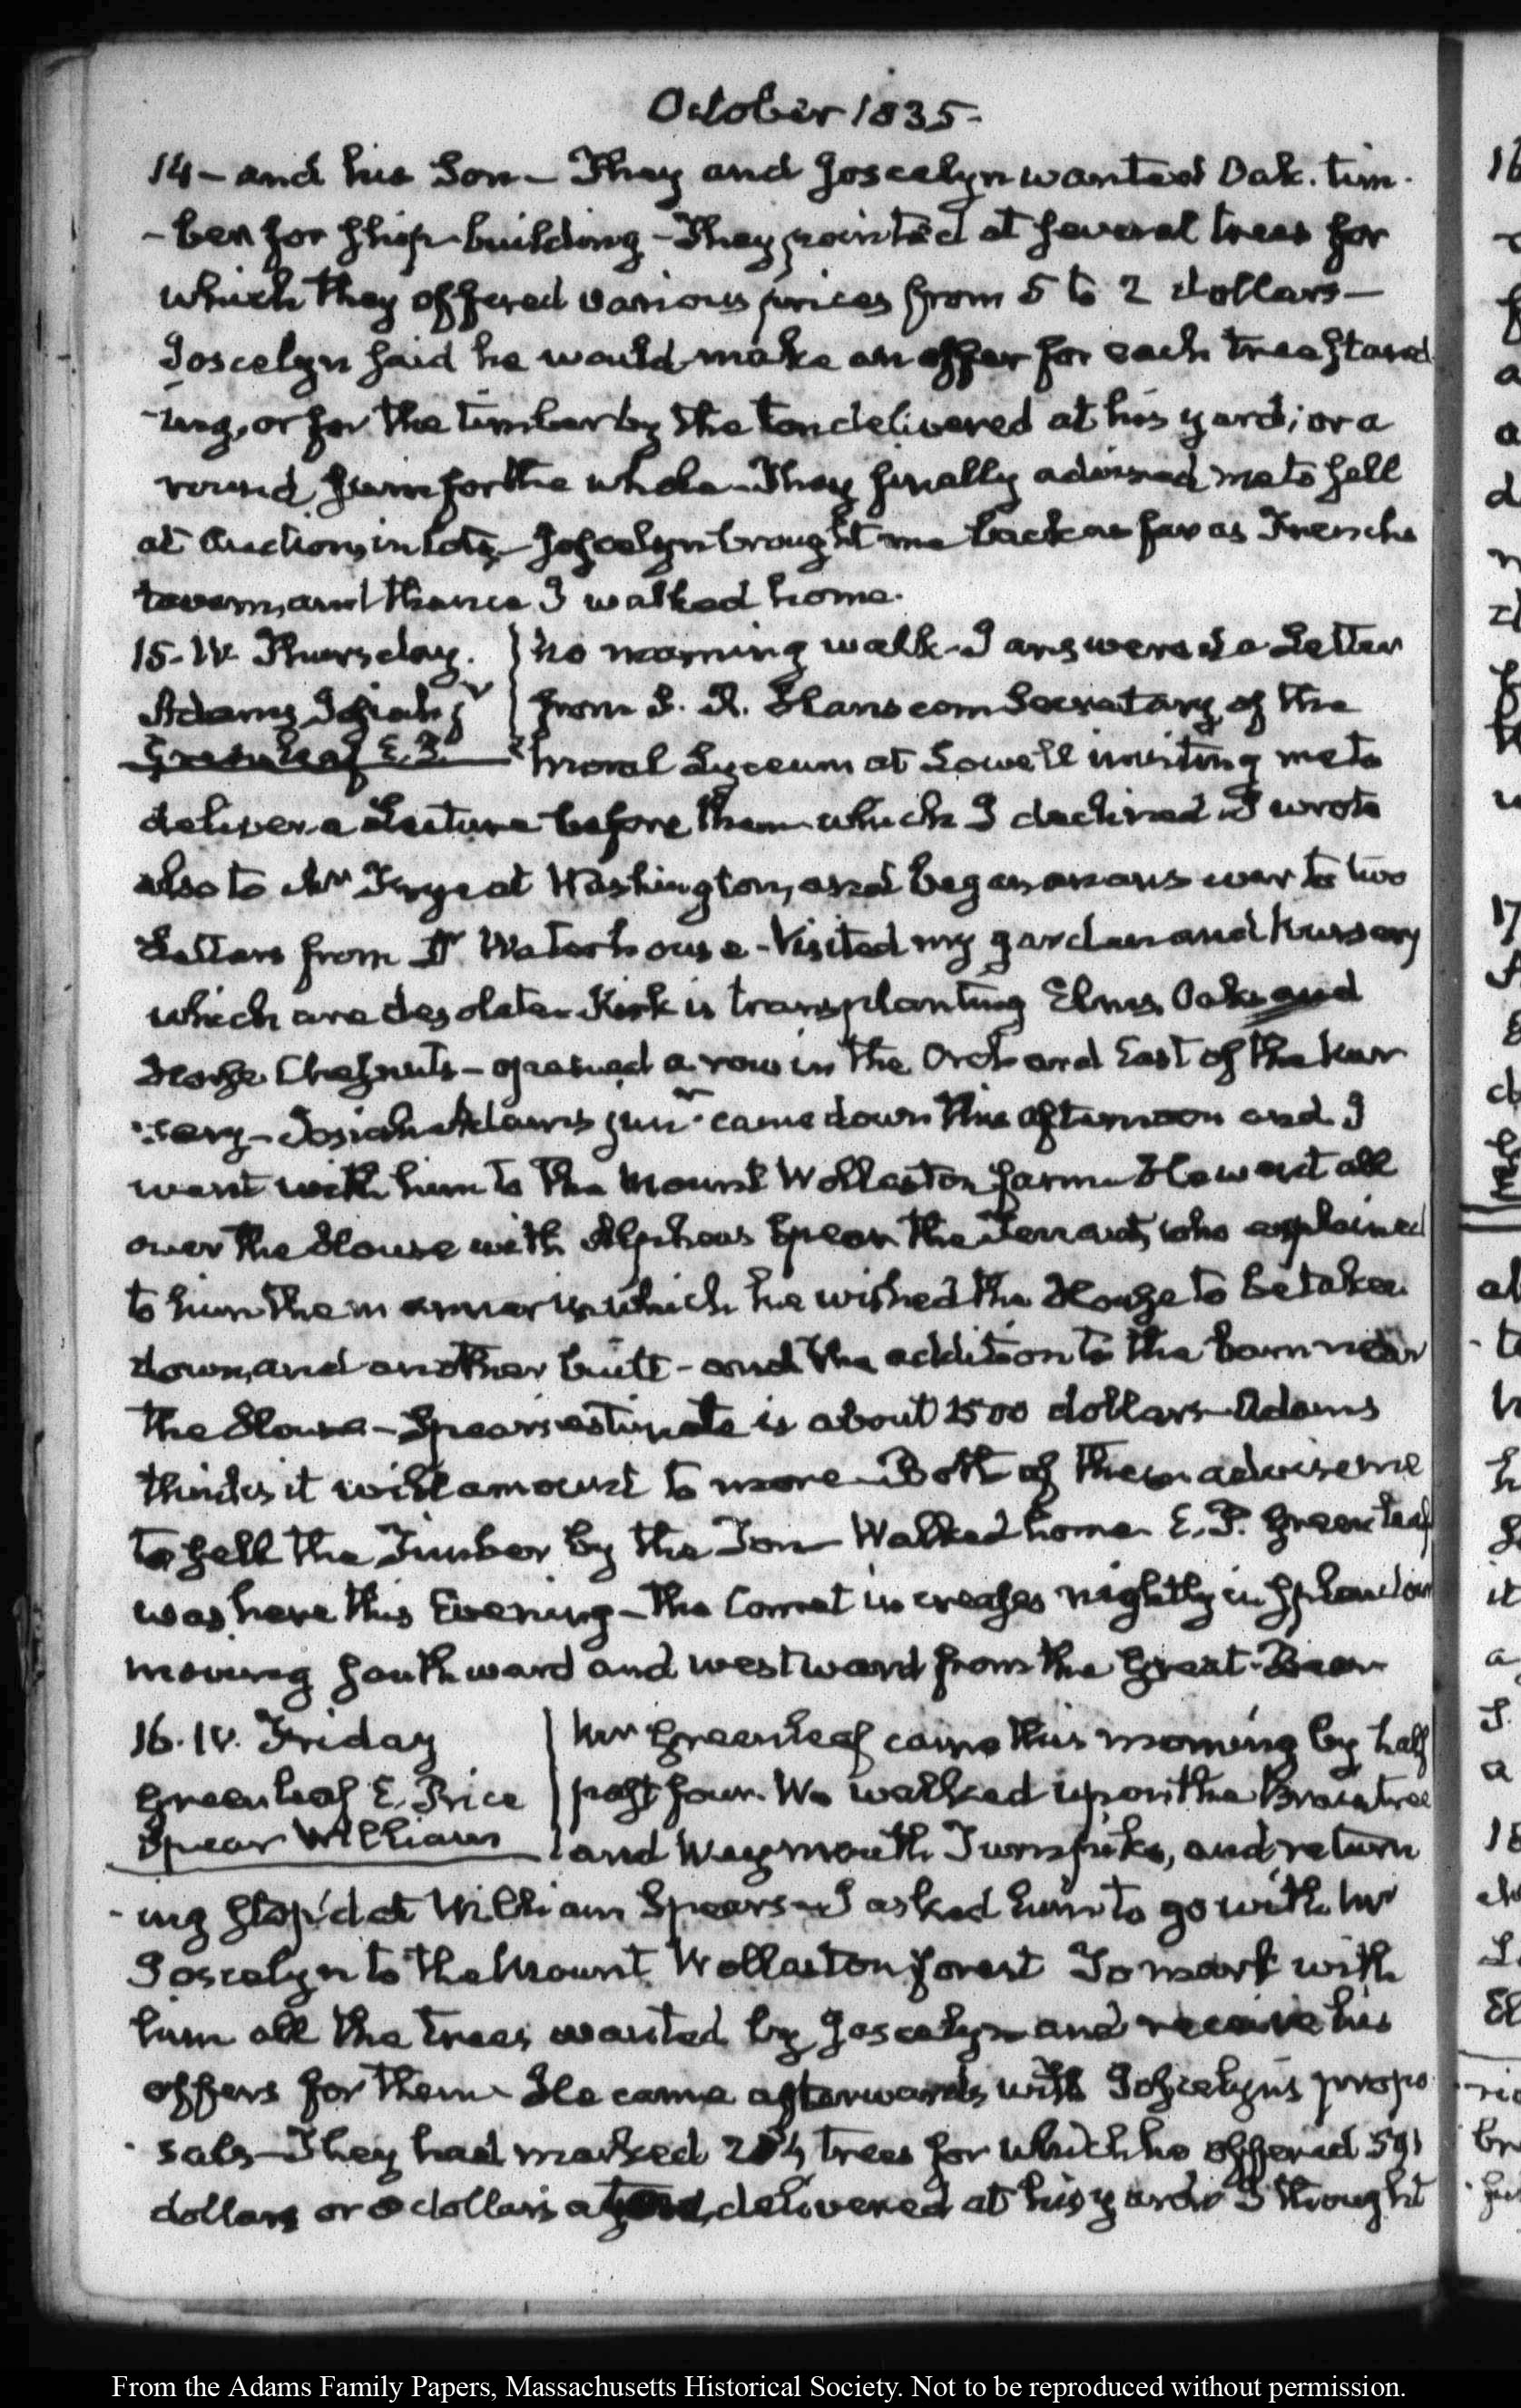 October 1835.
14 - and his Son - They and Joscelyn wanted Oak. tim-
-ber for ship-building - They pointed at several trees for
which they offered various prices from 5 to 2 dollars -
Joscelyn said he would make an offer for each tree stand
-ing, or for the timber by the ton delivered at his yard; or a
round sum for the whole - They finally advised me to sell
at Auction, in lots - Joscelyn brought me back as far as French's
tavern, and thence I walked home.
15. IV. Thursday.
Adams Josiah jr
Greenleaf E. P.
No morning walk - I answered a Letter
from S. R. Hanscom Secretary of the
Moral Lyceum at Lowell inviting me to
deliver a Lecture before them which I declined. I wrote
also to Mr Frye at Washington, and began an answer to two
Letters from Dr Waterhouse - Visited my garden and Nursery
which are desolate - Kirk is transplanting Elms, Oaks and
Horse Chesnuts - opened a row in the Orchard East of the Nur
-sery - Josiah Adams junr came down this afternoon and I
went with him to the Mount Wollaston farm - He went all
over the House with Alpheus Spear the Tenant, who explained
to him the manner in which he wished the House to be taken
down, and another built - and the addition to the barn near
the House - Spear's estimate is about 1500 dollars - Adams
thinks it will amount to more - Both of them advise me
to sell the Timber by the Ton - Walked home. E. P. Greenleaf
was here this Evening - The Comet increases nightly in splendour
moving southward and westward from the Great-Bear
16. IV. Friday
Greenleaf E. Price
Spear William
Mr Greenleaf came this morning by half
past four. We walked upon the Braintree
and Weymouth Turnpike, and return
-ing stop'd at William Spear's - I asked him to go with Mr
Joscelyn to the Mount Wollaston forest To mark with
him all the trees wanted by Joscelyn and receive his
offers for them - He came afterwards with Joscelyn's propo
-sals - They had marked 204 trees for which he offered 591
dollars or 8 dollars a ton, delivered at his yard - I thought
From the Adams Family Papers, Massachusetts Historical Society. Not to be reproduced without permission.